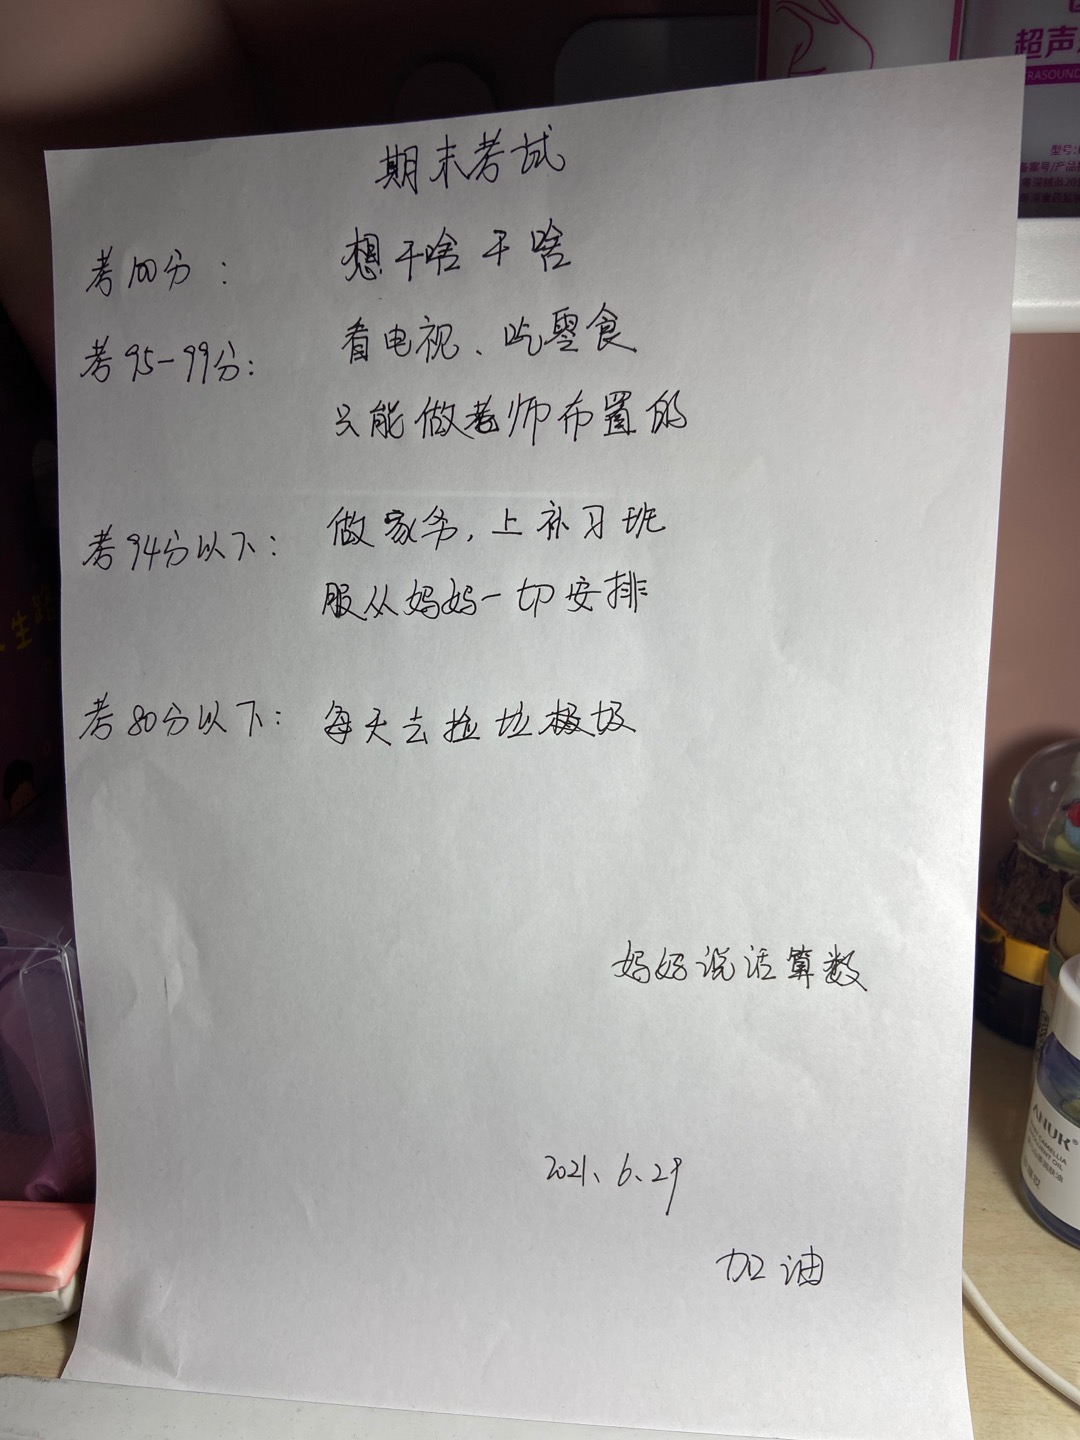 期末考试
考100分： 想干啥干啥
考95-99分： 看电视、吃零食
只能做老师布置的
考94分以下： 做家务，上补习班
服从妈妈一切安排
考80分以下： 每天去捡垃圾
妈妈说话算数
2021、6、29
加油
超声
RASOUND
型号:
ANUK®
CAMELLIA